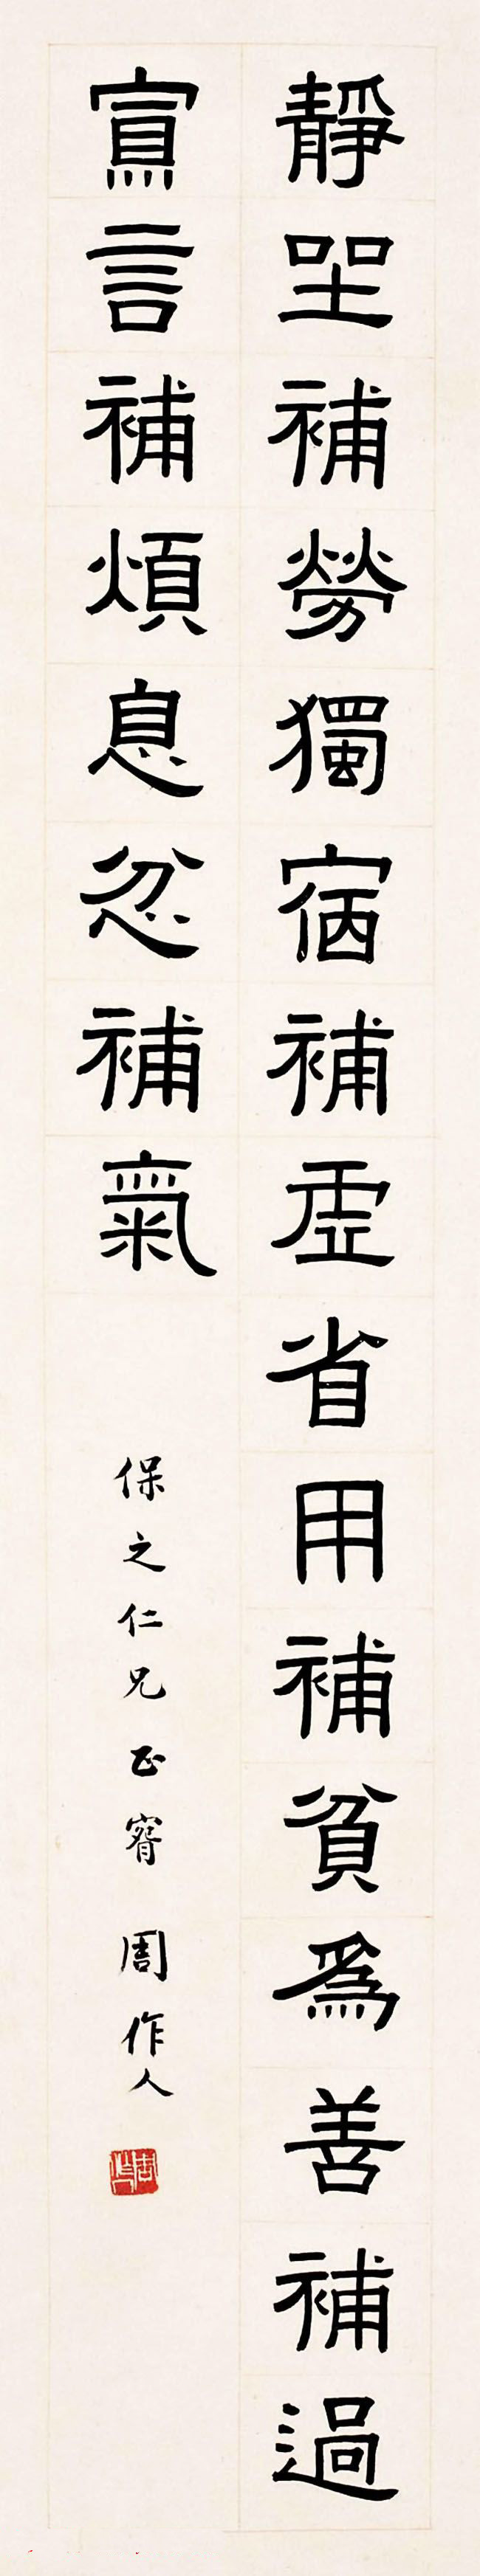 靜坐補勞獨宿補虛省用補貧爲善補過
寡言補煩息忿補氣
保之仁兄正 周作人